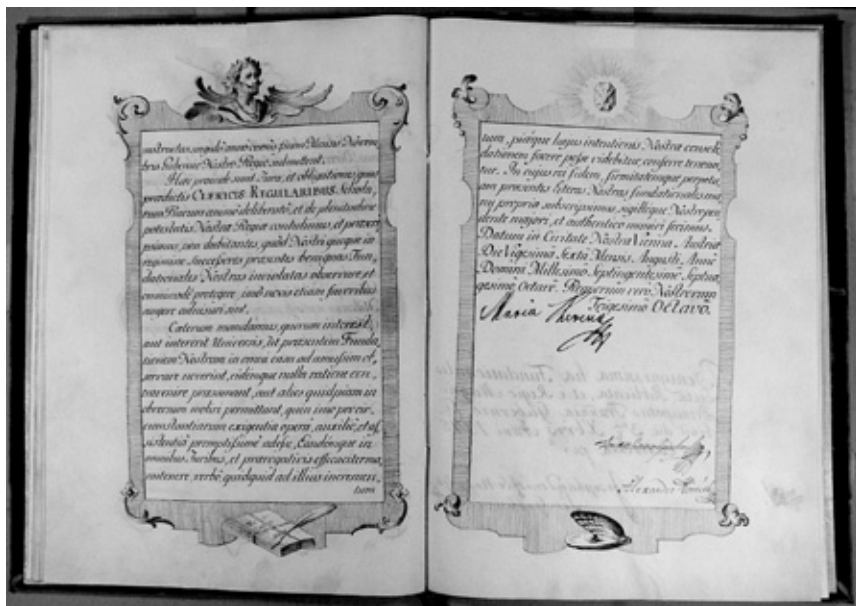 nostructas, singulis annis circa finem Mensis Novem-
bris Gubernio Nostro Regio submittent.
Hæc proinde sunt Jura, et obligationes, quas
prædictis CLERICIS REGULARIBUS Schola-
rum Piarum animo deliberato, et de plenitudine
potestatis Nostræ Regiæ contulimus, et præscri-
psimus, non dubitantes, quod Nostri quoque in
regimine Successores præsentes benignas Fun-
dationales Nostras inviolatas observare et
omnimodè protegere, imò novis etiam favoribus
augere adlaturi sint.
Cæterum mandamus, quorum interest,
aut intererit Universis, ut præsentem Funda-
tionem Nostram in omni casu ad amussim ob-
servare noverint, eidemque nulla ratione con-
travenire præsumant, aut alios quidpiam in
obversum moliri permittant, quin imò pro cir-
cumstantiarum exigentia operâ, auxiliô, et as-
sistentiâ promptissimè adesse, Eandemque in
omnibus Juribus, et prærogativis efficaciter ma-
nutenere, verbô, quidquid ad illius incremen-
tum
tum, piæque hujus intentionis Nostræ consoli-
dationem facere posse videbitur, conferre tenean-
tur. In cujus rei fidem, firmitatemque perpetu-
am præsentes literas Nostras fundationales ma-
nu propria subscripsimus, sigillique Nostri pen-
dente majori, et authentico muniri fecimus.
Datum in Civitate Nostra Vienna Austriæ
Die Vigesima Sexta Mensis Augusti, Anno
Domini Millesimo Septingentesimo Septua-
gesimo Octavô. Regnorum verò Nostrorum
Trigesimô Octavô.
Maria Theresia
Alexander